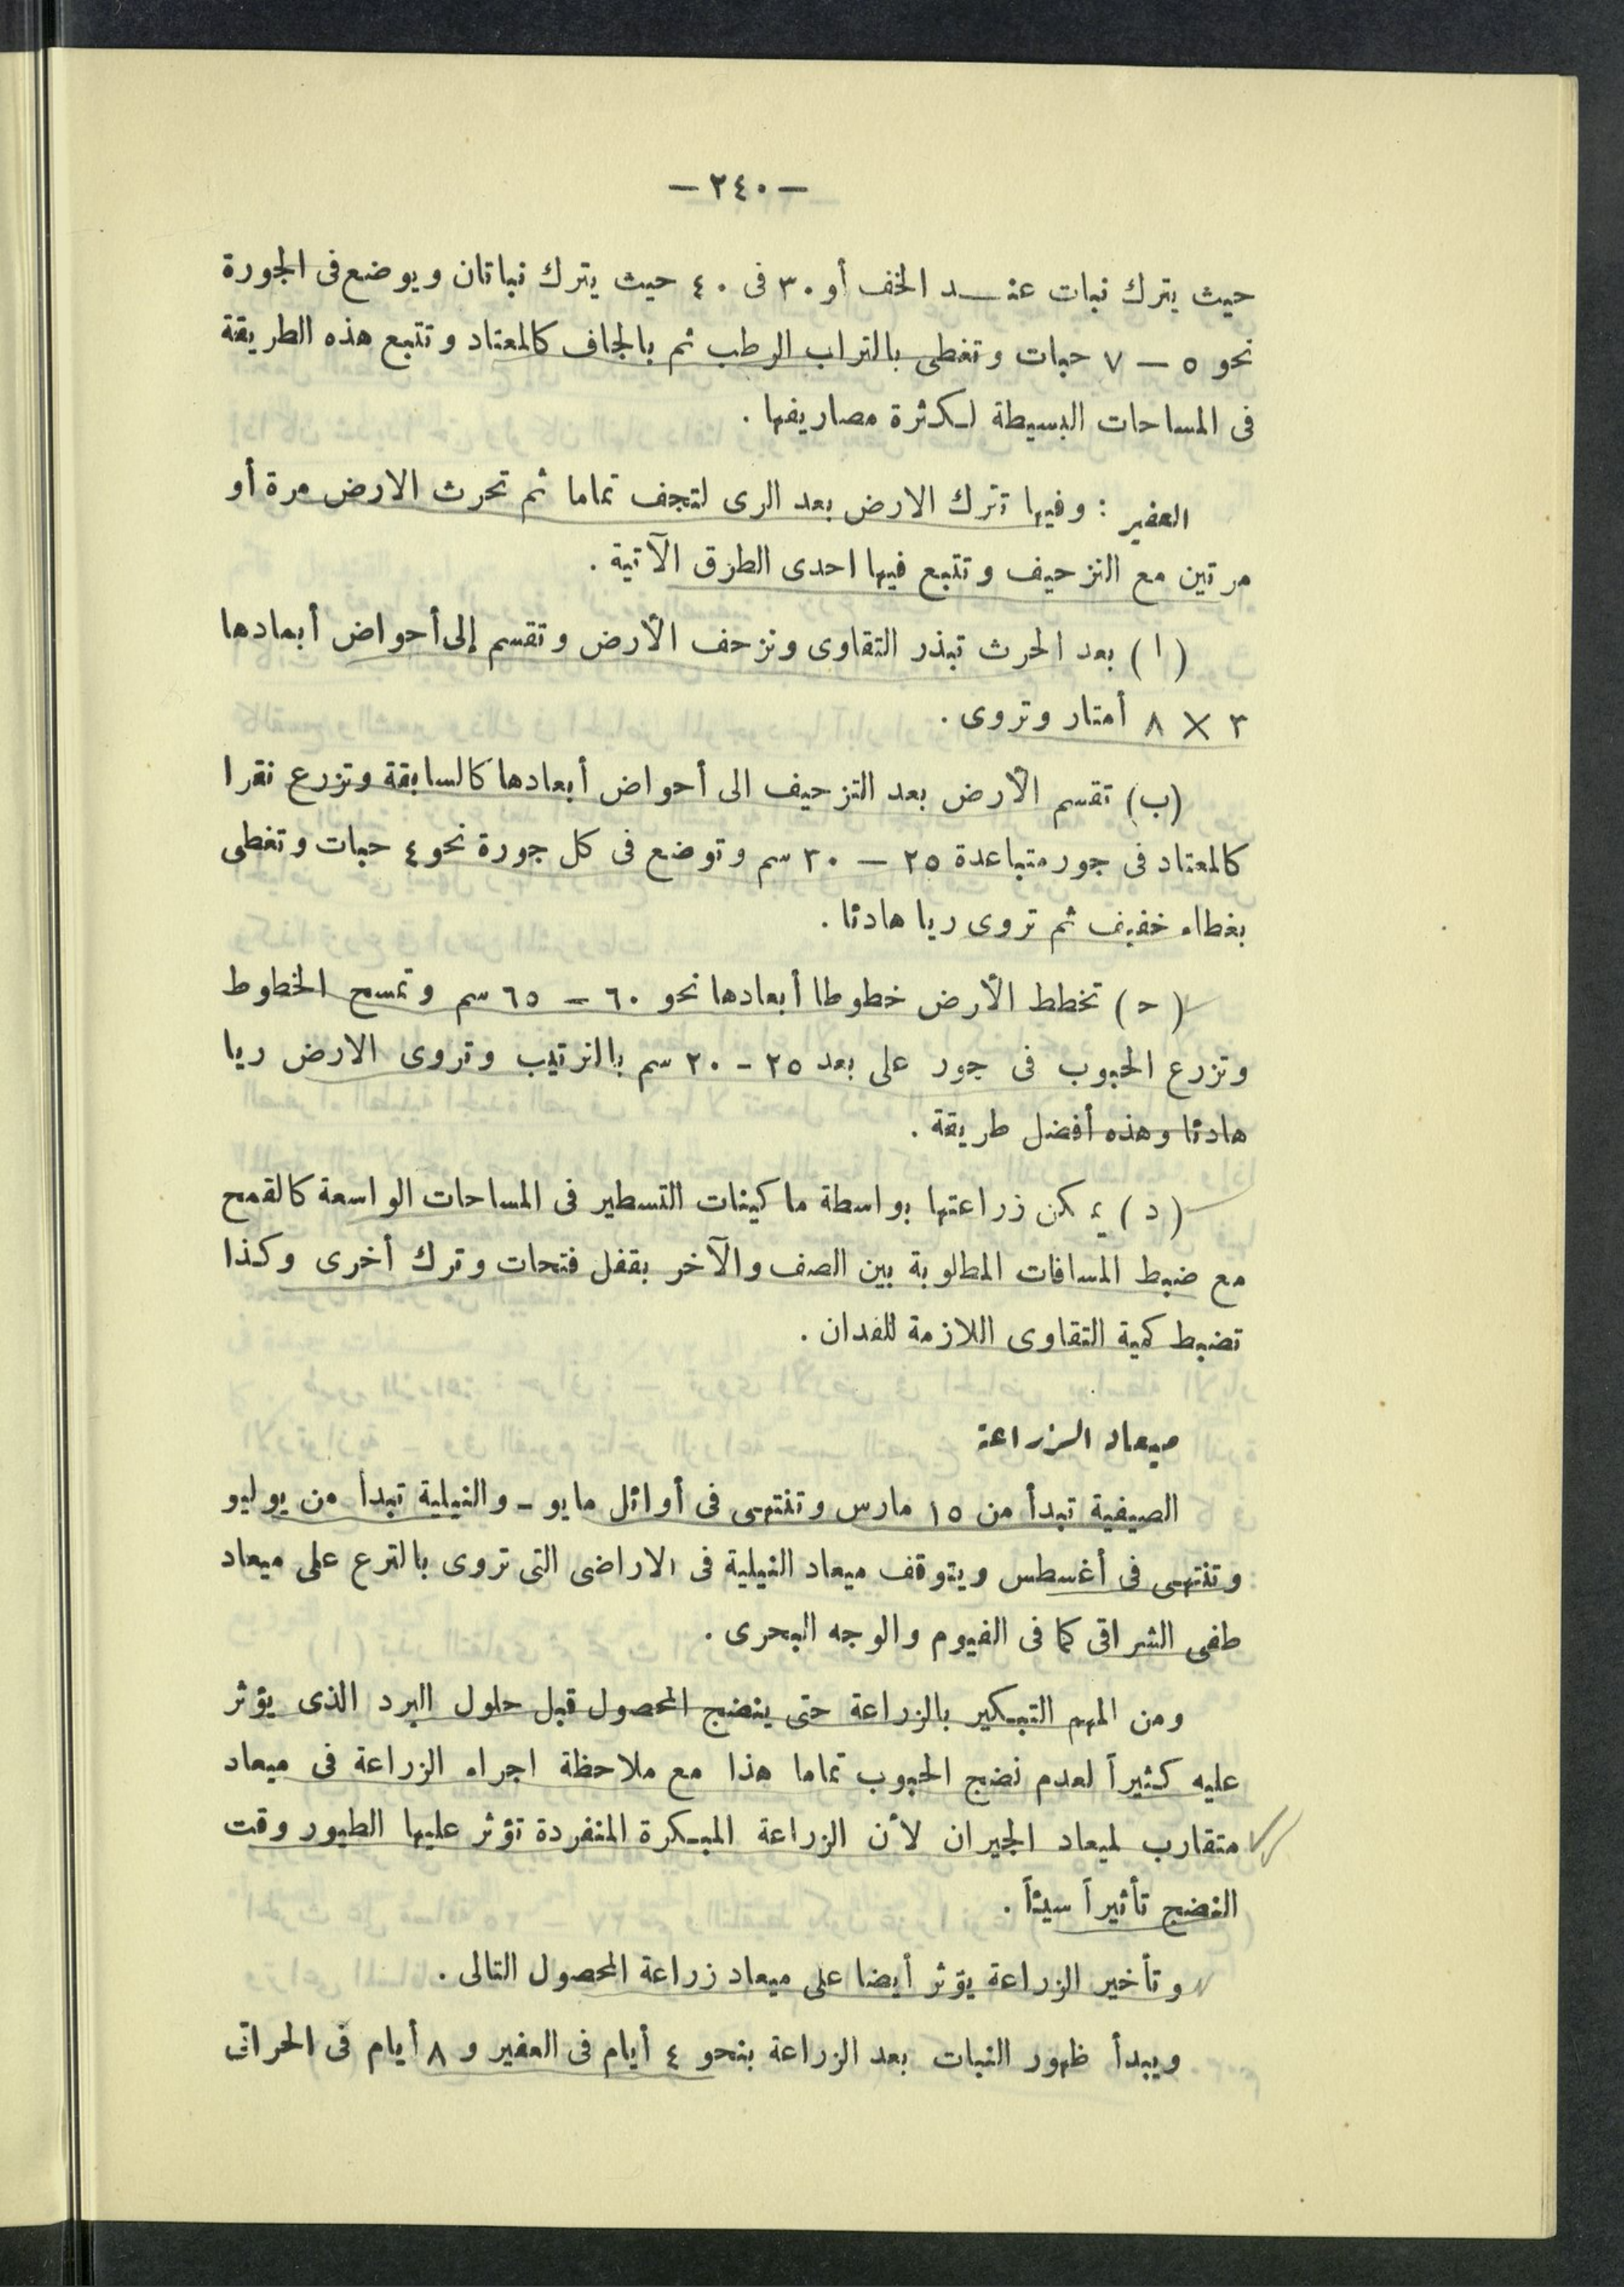 — ٢٤٠ —
حيث يترك نبات عنـــد الخف أو ٣٠ فى ٤٠ حيث يترك نباتان ويوضع فى الجورة
نحو ٥ — ٧ حبات وتغطى بالتراب الرطب ثم بالجاف كالمعتاد وتتبع هذه الطريقة
فى المساحات البسيطة لكثرة مصاريفها .
العفير : وفيها تترك الارض بعد الرى لتجف تماما ثم تحرث الارض مرة أو
مرتين مع التزحيف وتتبع فيها احدى الطرق الآتية .
( ا ) بعد الحرث تبذر التقاوى وتزحف الأرض وتقسم إلى أحواض أبعادها
٣ × ٨ أمتار وتروى .
(ب) تقسم الأرض بعد التزحيف الى أحواض أبعادها كالسابقة وتزرع نقرا
كالمعتاد فى جور متباعدة ٢٥ — ٣٠ سم وتوضع فى كل جورة نحو ٤ حبات وتغطى
بغطاء خفيف ثم تروى ريا هادئا .
( ح ) تخطط الأرض خطوطا أبعادها نحو ٦٠ — ٦٥ سم وتمسح الخطوط
وتزرع الحبوب فى جور على بعد ٢٥ - ٢٠ سم بالترتيب وتروى الارض ريا
هادئا وهذه أفضل طريقة .
( د ) يمكن زراعتها بواسطة ماكينات التسطير فى المساحات الواسعة كالقمح
مع ضبط المسافات المطلوبة بين الصف والآخر بقفل فتحات وترك أخرى وكذا
تضبط كمية التقاوى اللازمة للفدان .
ميعاد الزراعة
الصيفية تبدأ من ١٥ مارس وتنتهى فى أوائل مايو - والنيلية تبدأ من يوليو
وتنتهى فى أغسطس ويتوقف ميعاد النيلية فى الاراضى التى تروى بالترع على ميعاد
طفى الشراقى كما فى الفيوم والوجه البحرى .
ومن المهم التبكير بالزراعة حتى ينضج المحصول قبل حلول البرد الذى يؤثر
عليه كثيراً لعدم نضج الحبوب تماما هذا مع ملاحظة اجراء الزراعة فى ميعاد
متقارب لميعاد الجيران لأن الزراعة المبكرة المنفردة تؤثر عليها الطيور وقت
النضج تأثيراً سيئاً .
وتأخير الزراعة يؤثر أيضا على ميعاد زراعة المحصول التالى .
ويبدأ ظهور النبات بعد الزراعة بنحو ٤ أيام فى العفير و ٨ أيام فى الحراتى